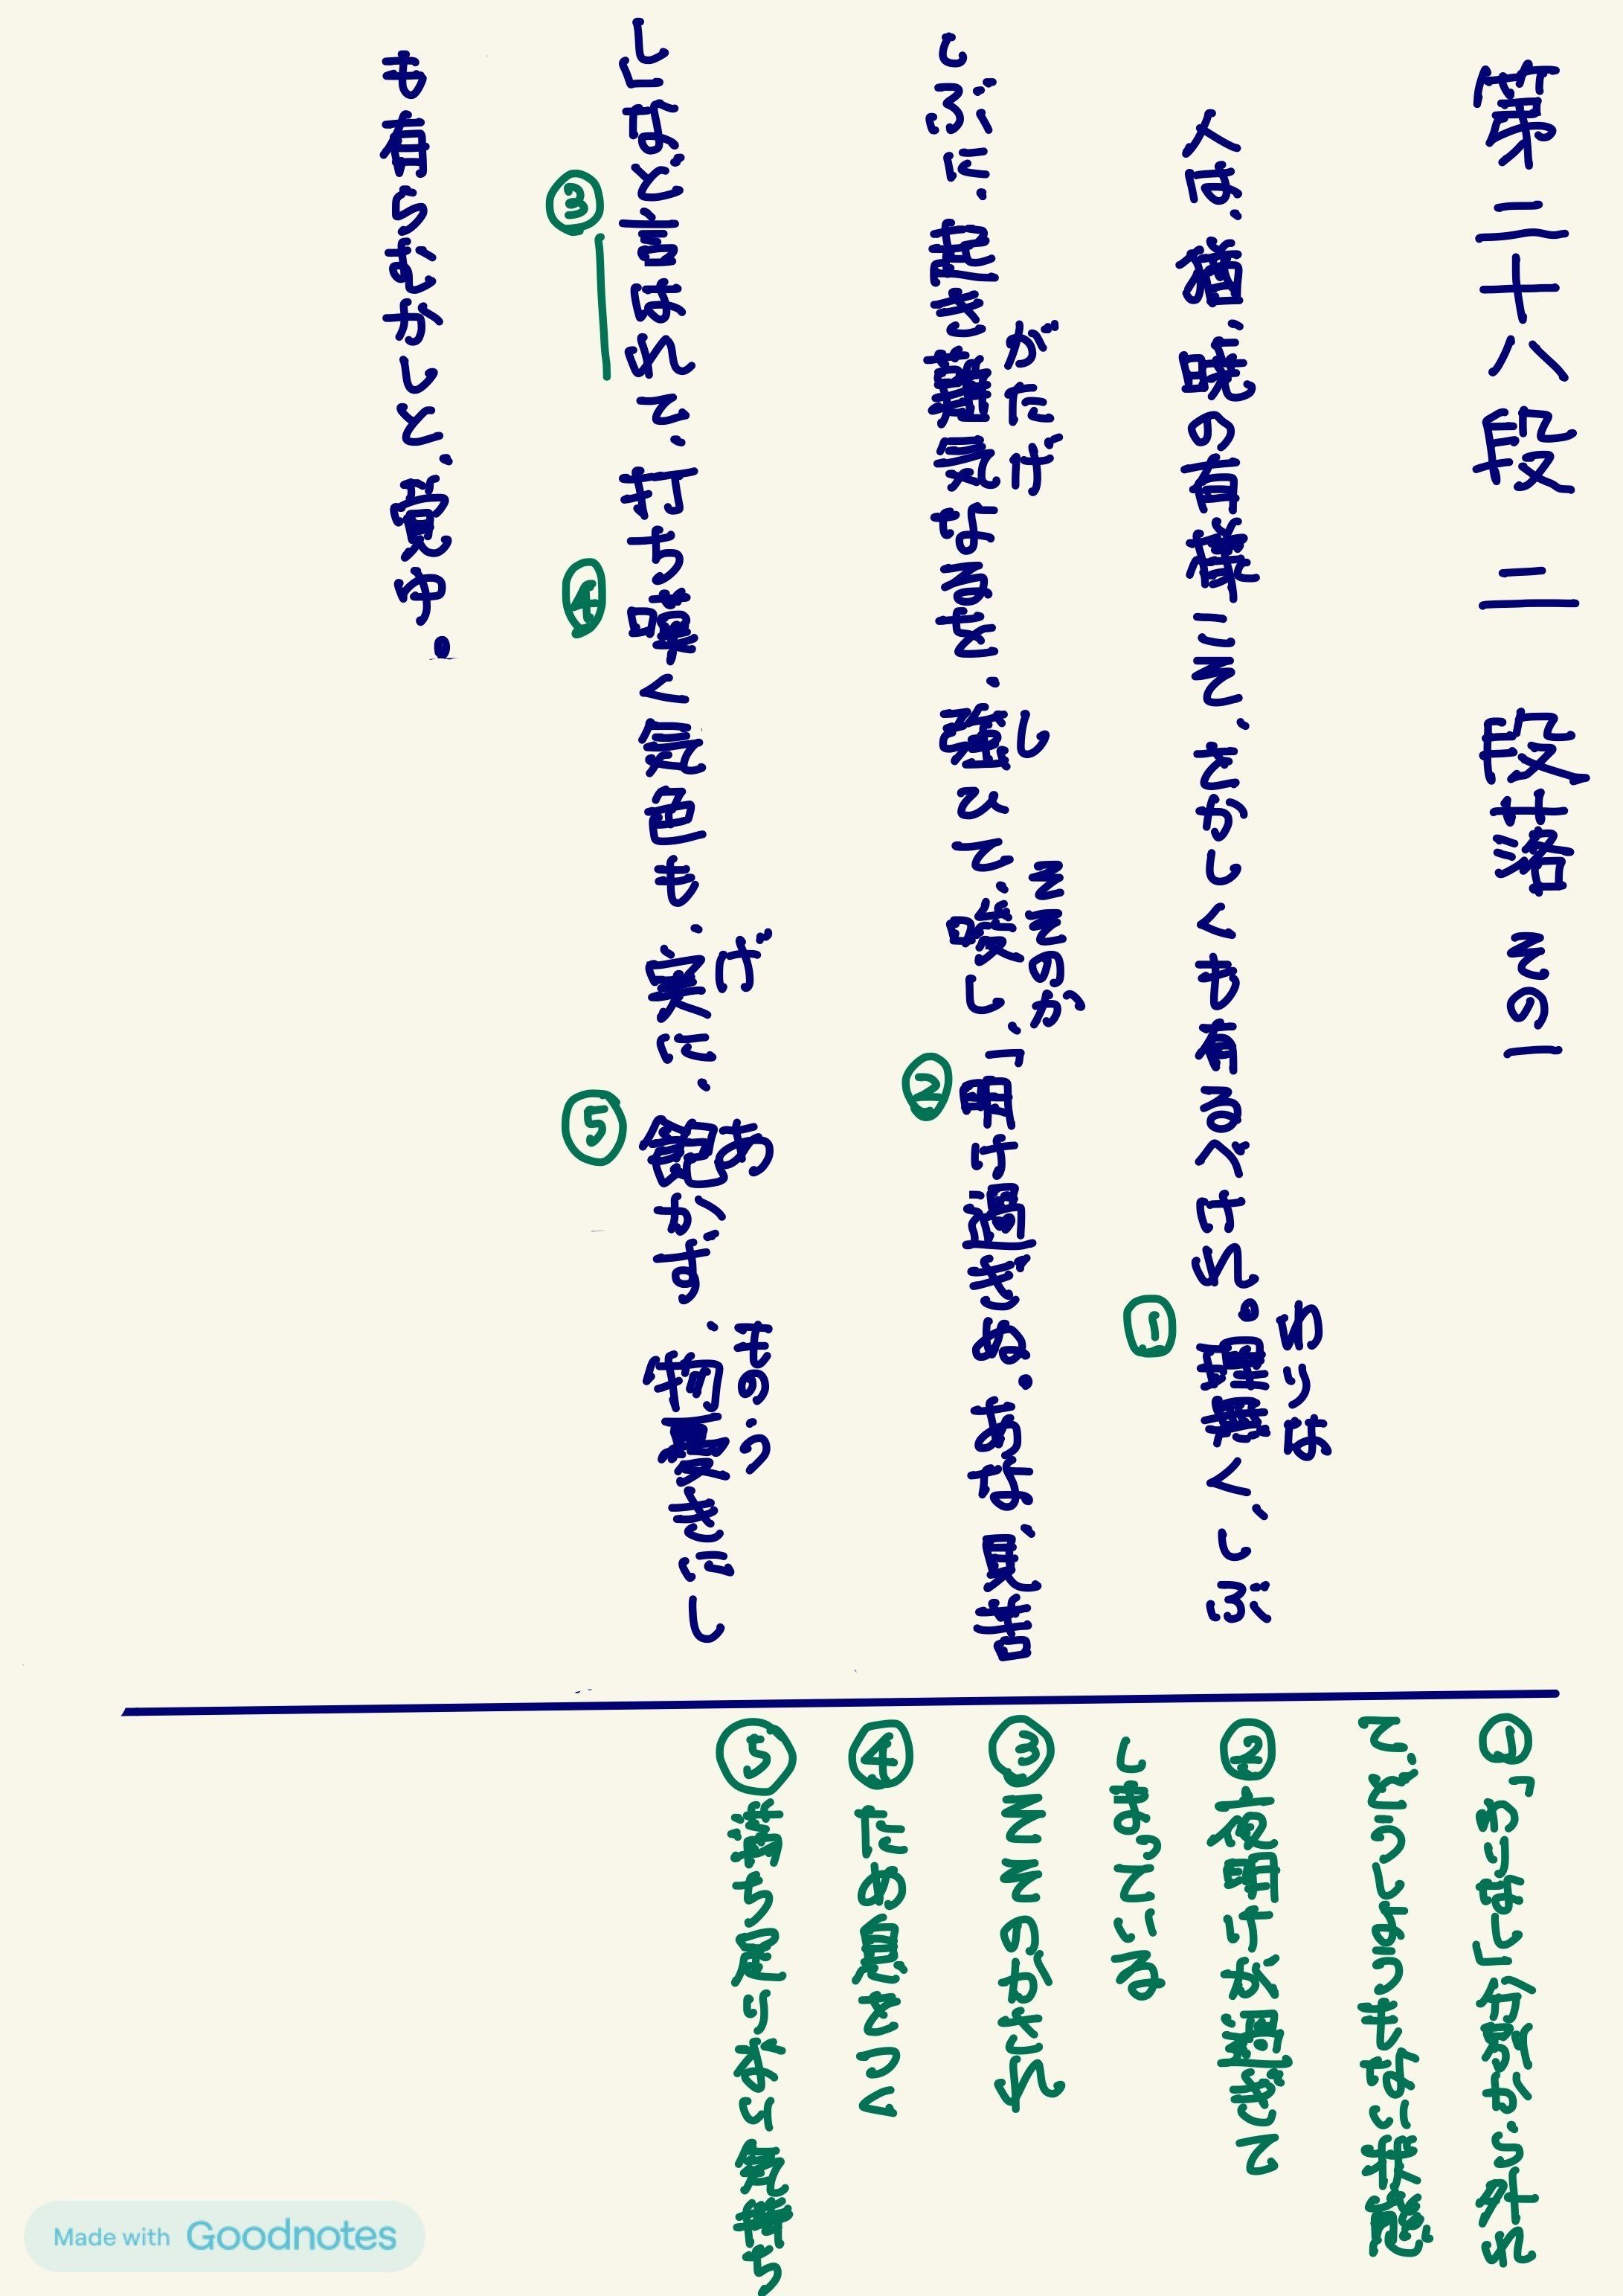 第二十八段 二段落 その一
人は、猶、暁の有様こそ、をかしくも有るべけれ。①理無く、しぶ
わりな
しぶに、起き難気なるを、強ひて、唆し、「②明け過ぎぬ。あな、見苦
がたげ
し
そそのか
し」など③言はれて、打ち④嘆く気色も、実に、⑤飽かず、物憂きにし
げ
あ
ものう
も有らむかしと、覚ゆ。
①「わりなし」分別から外れ
て、どうしようもない状態
②夜明けが過ぎて
しまっている
③そそのかされ
④ため息をつく
⑤満ち足りない気持ち
Made with Goodnotes